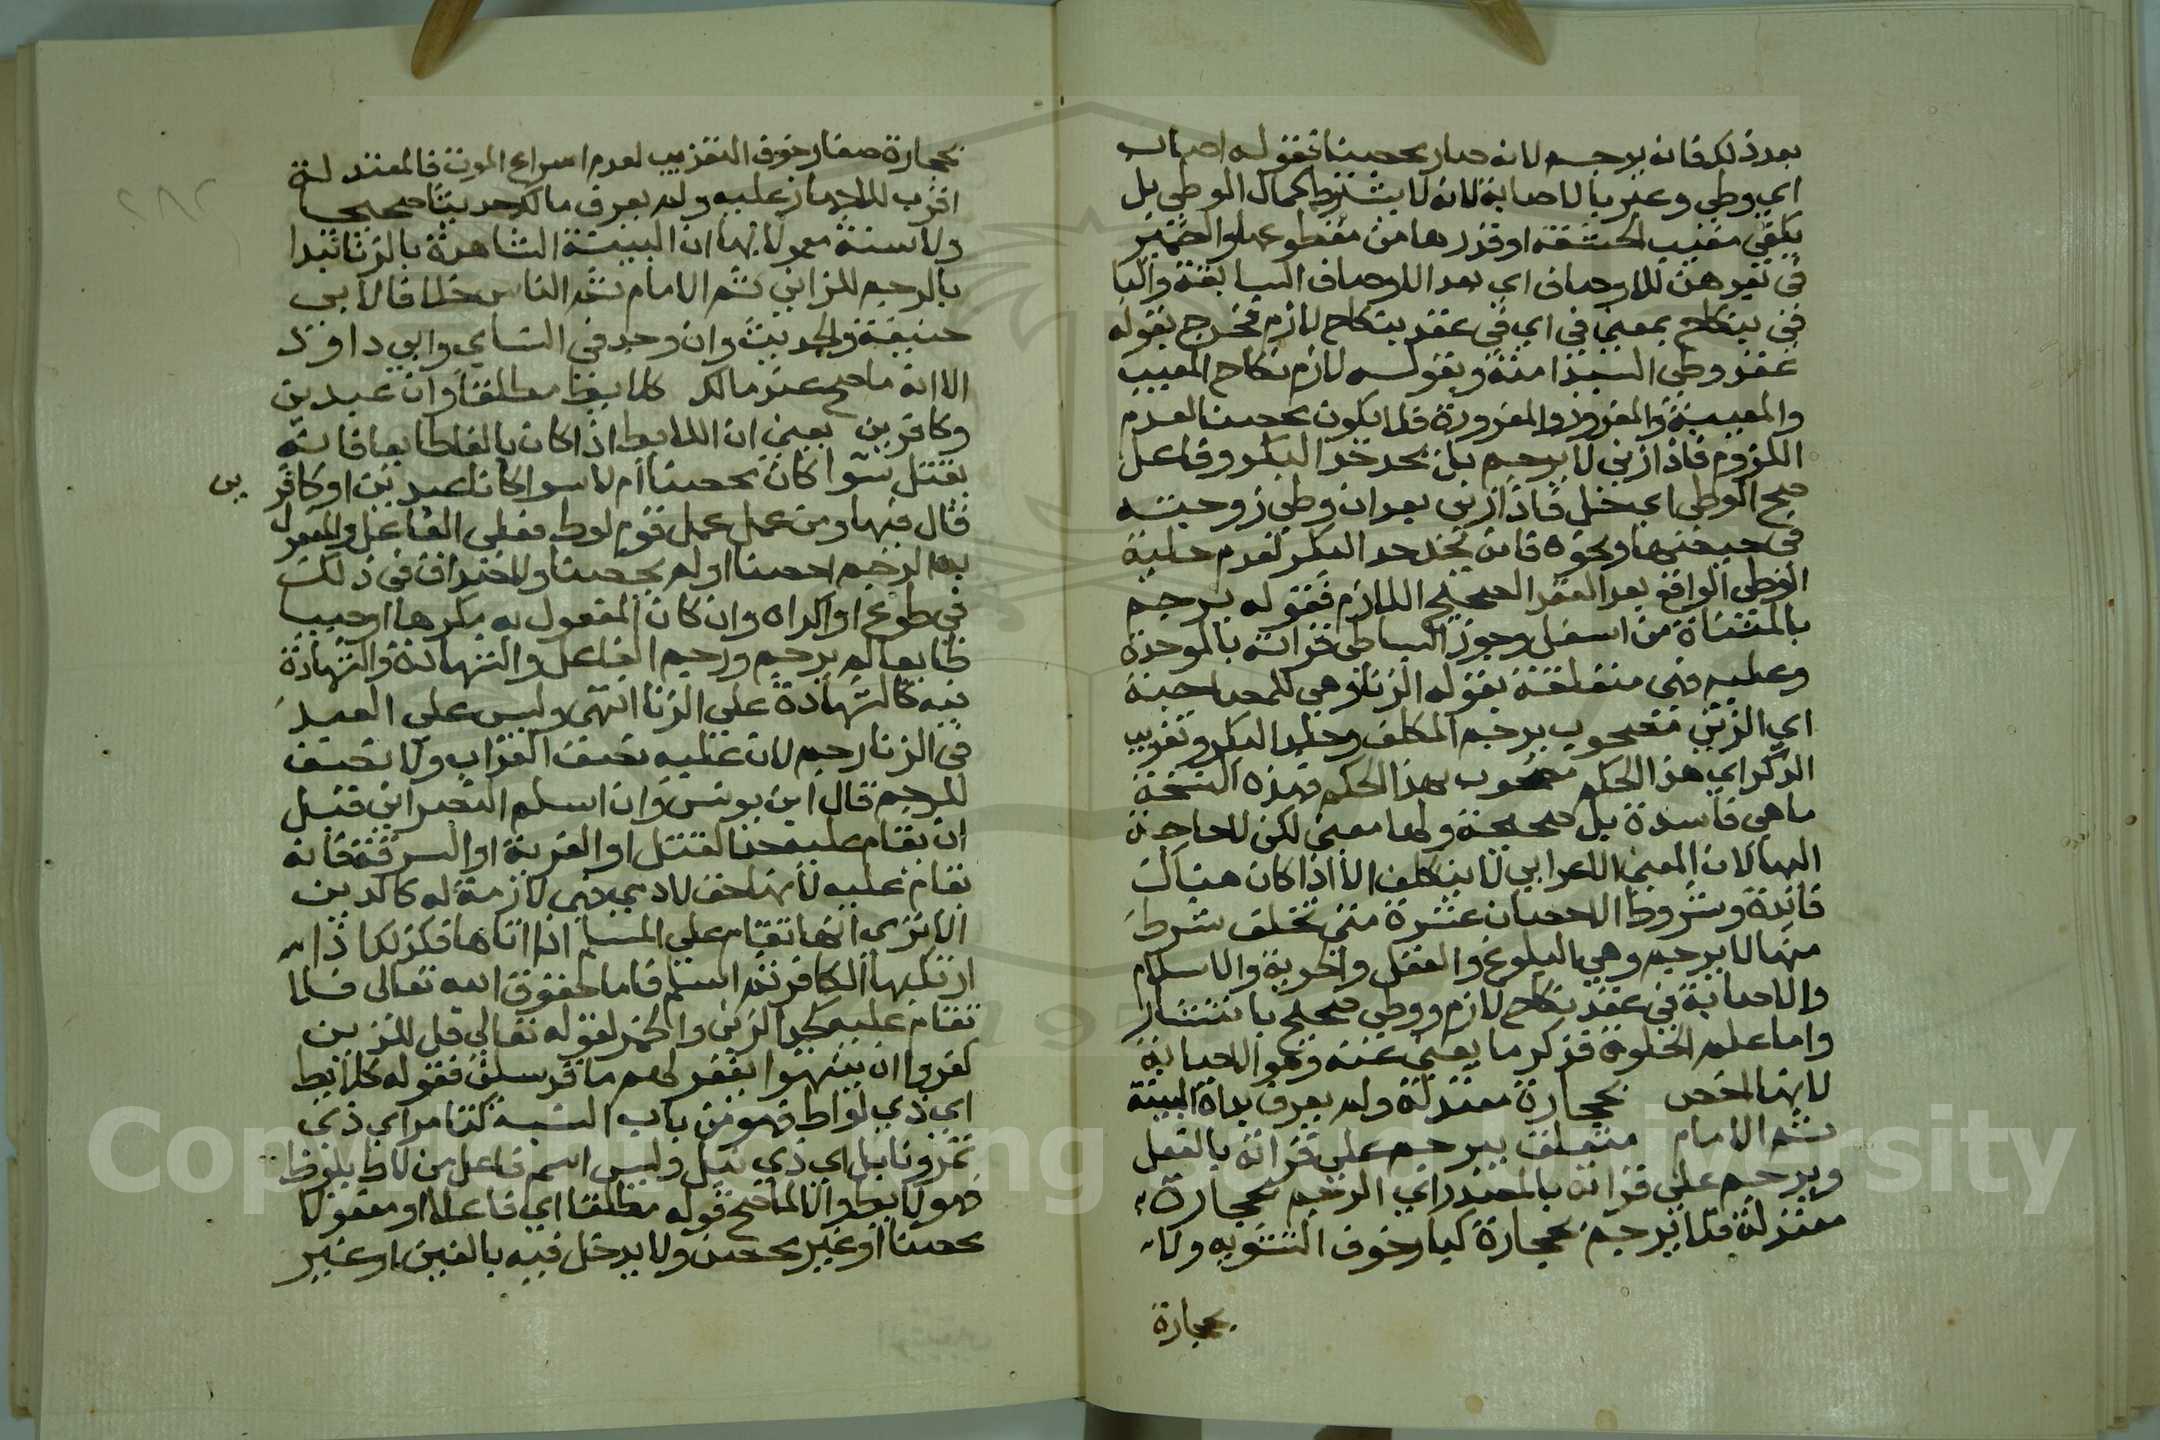 بعد ذلك فانه يرجم لانه صار محصنا فقوله اصاب
اي وطي وعبر بالاصابة لانه لا يشترط كمال الوطي بل
يكفي مغيب الحشفة او قدرها من مقطوعها والضمير
في بعدهن للاوصاف اي بعد الاوصاف السابقة والبا
في بنكاح بمعنى في اي في عقد بنكاح لازم فخرج بقوله
عقد وطي السيد امته وبقوله لازم نكاح المعيب
والمعيبة والمغرور والمغرورة فلا يكون محصنا لعدم
اللزوم فاذا زنى لا يرجم بل يحد حد البكر وفاعل
صح الوطي اي حل فاذا زنى بعد ان وطي زوجته
في حيضها ونحوه فانه يحد حد البكر لعدم حلية
الوطي الواقع بعد العقد الصحيح اللازم فقوله يرجم
بالمثناة من اسفل وجوز البساطي قراته بالموحدة
وعليه فهي متعلقة بقوله الزنا وهي للمصاحبة
اي الزنى مصحوب برجم المكلف وجلد البكر وتغريب
الذكر اي هذا الحكم مصحوب بهذا الحكم فهذه النسخة
ما هي فاسدة بل صحيحة ولها معنى لكن لا حاجة
اليها لان المعنى الاعرابي لا يتكلف الا اذا كان هناك
فائدة وشروط الاحصان عشرة متى تخلف شرط
منها لا يرجم وهي البلوغ والعقل والحرية والاسلام
والاصابة في عقد نكاح لازم ووطي صحيح بانتشار
واما علم الخلوة فذكر ما يغني عنه وهو الاصابة
لانها اخص بحجارة معتدلة ولم يعرف بداة البينة
ثم الامام متعلق بيرجم على قراته بالفعل
وبرجم على قراته بالمصدر اي الرجم بحجارة
معتدلة فلا يرجم بحجارة كبار خوف التشويه ولا
بحجارة
بحجارة صغار خوف التعذيب لعدم اسراع الموت فالمعتدلة
اقرب للاجهاز عليه ولم يعرف مالك حديثا صحيحا
ولا سنة معمولا بها ان البينة الشاهدة بالزنا تبدا
بالرجم للزاني ثم الامام ثم الناس خلافا لابي
حنيفة والحديث وان وجد في النساي وابي داود
الا انه ما صح عند مالك كلايط مطلقا وان عبدين
وكافرين يعني ان اللايط اذا كان بالغا طايعا فانه
يقتل سوا كان محصنا ام لا سوا كانا عبدين او كافر
ين
قال فيها ومن عمل عمل قوم لوط فعلى الفاعل والمفعول
به الرجم احصنا او لم يحصنا ولا صداق في ذلك
في طوع او اكراه وان كان المفعول به مكرها او صبيا
طايعا لم يرجم ورجم الفاعل والشهادة
فيه كالشهادة على الزنا انتهى وليس على العبد
في الزنا رجم لان عليه نصف العذاب ولا نصف
للرجم قال ابن يونس وان اسلم النصراني قبل
ان يقام عليه حد القتل او الفرية او السرقة فانه
يقام عليه لانها حق لادمي فهي لازمة له كالدين
الا ترى انها تقام على المسلم اذا اتاها فكذلك اذا
ارتكبها الكافر ثم اسلم فاما حقوق الله تعالى فلا
تقام عليه كحد الزنى والخمر لقوله تعالى قل للذين
كفروا ان ينتهوا يغفر لهم ما قد سلف فقوله كلايط
اي ذي لواط فهو من باب النسبة كتامر اي ذي
تمر ونابل اي ذي نبل وليس اسم فاعل من لاط يلوط
فهو لايط والا لما صح قوله مطلقا اي فاعلا او مفعولا
محصنا او غير محصن ولا يدخل فيه بالغين او غير